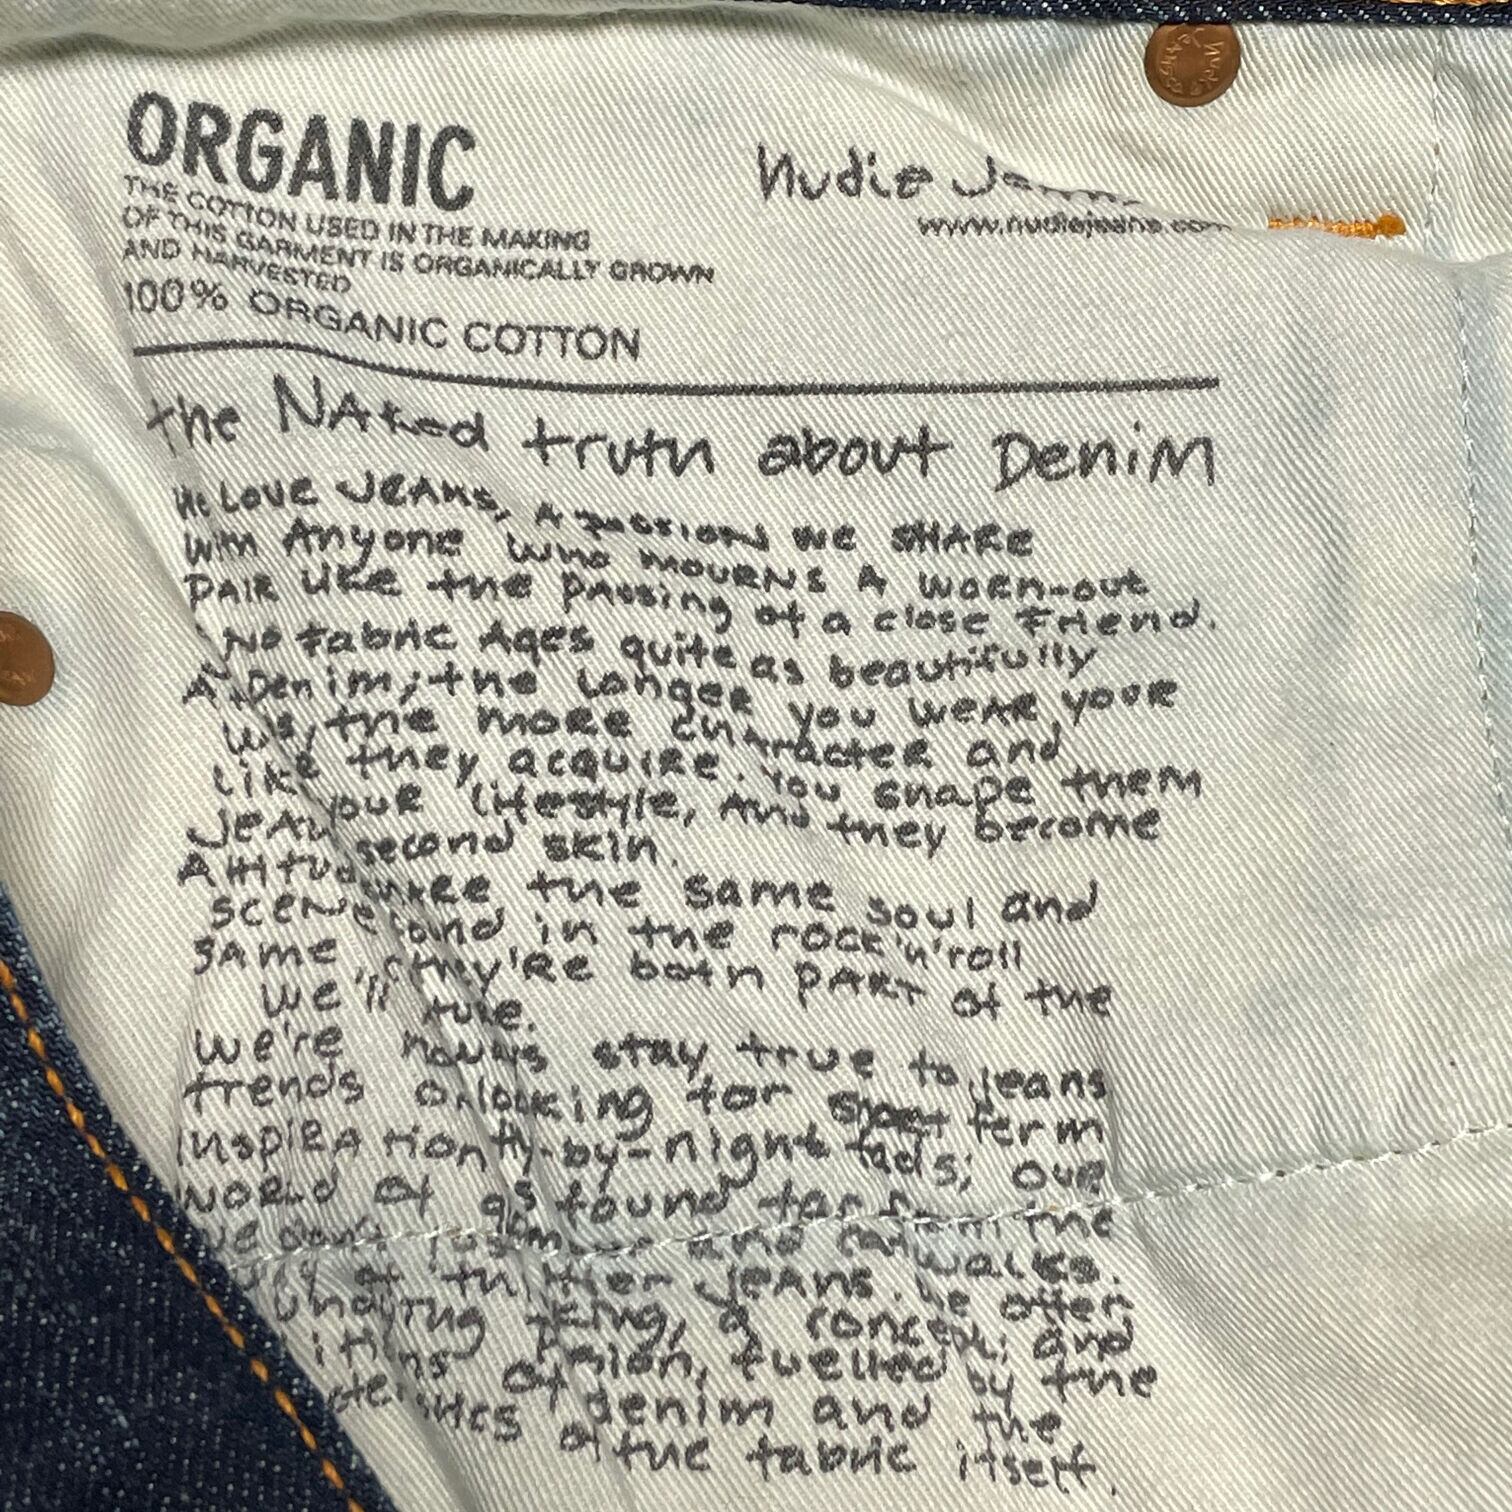 ORGANIC
THE COTTON USED IN THE MAKING
OF THIS GARMENT IS ORGANICALLY GROWN
AND HARVESTED
100% ORGANIC COTTON
Nudie
www.nudiejeans.com
Nudie Jeans
the NAked truth about DeniM
We Love JeANs, A passion we SHARe
with Anyone who mourns A worn-out
PAIR Like the passing of a close Friend.
No Fabric Ages quite as beautifully
As Denim; the Longer you weAR your
the more character and
Like they acquire. You shape them
JeAn your Lifestyle, And they become
Attitude second skin.
the same soul and
scene and in the rock'n'roll
same they're both PART of the
we'll
we're always stay true to jeans
trends looking for short term
Inspiration by-night fads; our
world of found far from the
and catwalks.
of jeANs. we offer
undying a concept; and
fuelled by the
of denim and the
of the fabric itself.